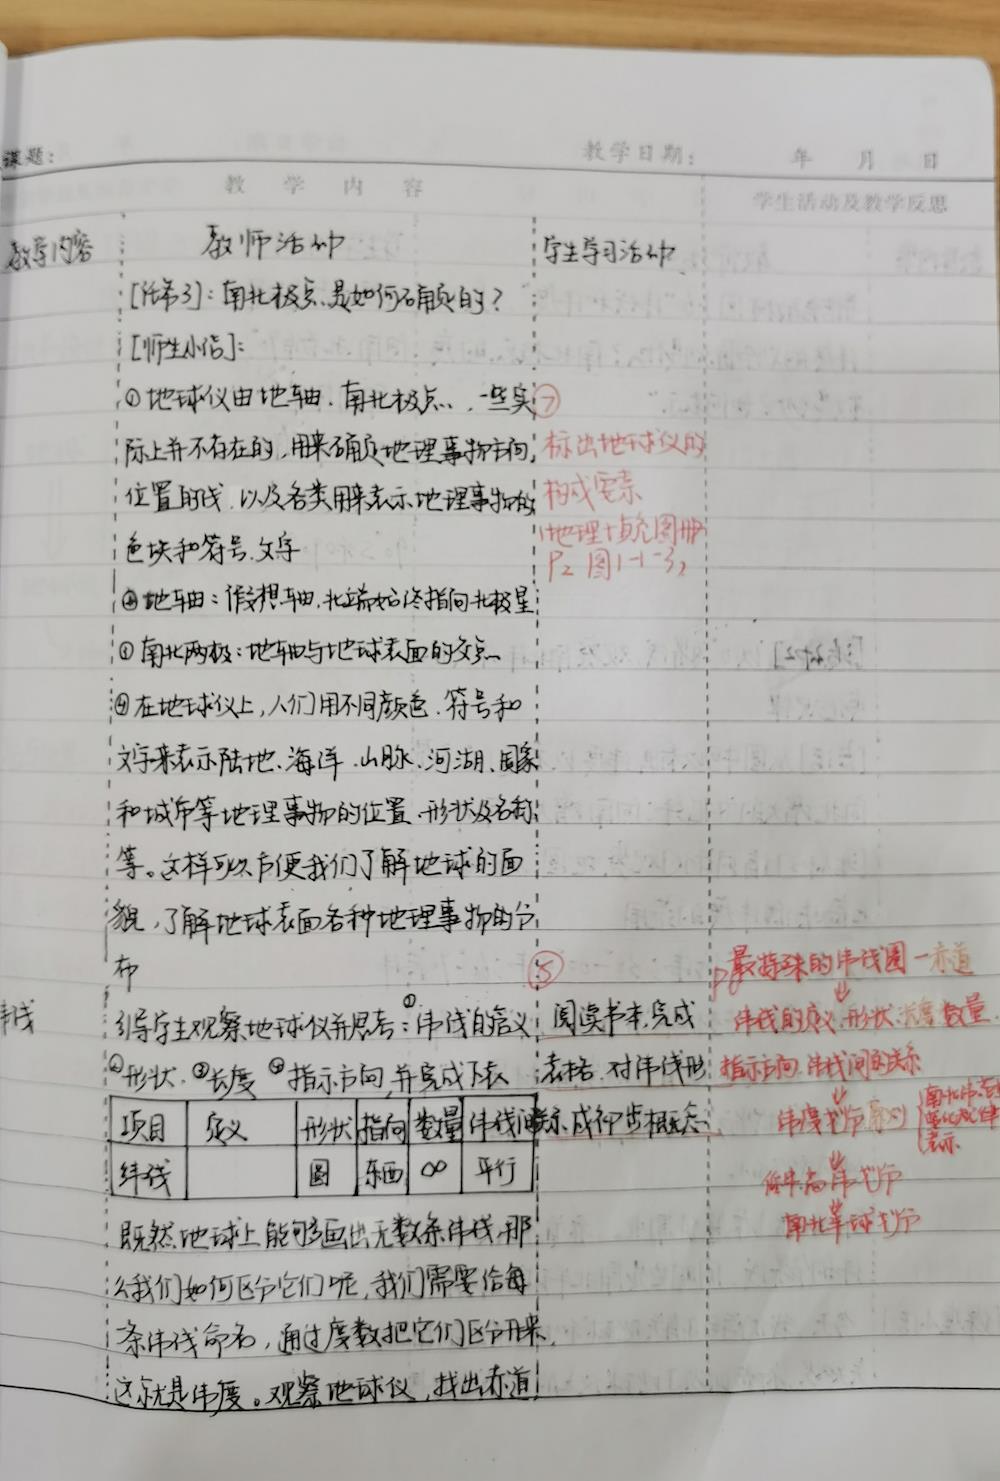 课题:
教学日期: 年 月 日
教 学 内 容
学生活动及教学反思
教学内容
教师活动
学生学习活动
[任务3]：南北极点是如何确定的？
[师生小结]：
①地球仪由地轴、南北极点、一些实
际上并不存在的，用来确定地理事物方向、
位置的线，以及各类用来表示地理事物的
色块和符号、文字
②地轴：假想轴，北端始终指向北极星
①南北两极：地轴与地球表面的交点
④在地球仪上，人们用不同颜色、符号和
文字来表示陆地、海洋、山脉、河湖、国家
和城市等地理事物的位置、形状及名称
等。这样可以方便我们了解地球的面
貌，了解地球表面各种地理事物的分
布
⑦
标出地球仪的
构成要素
(地理填充图册
P2 图1-1-3)
纬线
引导学生观察地球仪并思考：①纬线的定义
②形状、③长度 ④指示方向，并完成下表
项目 定义 形状 指向 数量 纬线间关系
纬线 圆 东西 ∞ 平行
既然地球上能够画出无数条纬线，那
么我们如何区分它们呢，我们需要给每
条纬线命名，通过度数把它们区分开来，
这就是纬度。观察地球仪，找出赤道，
⑤
阅读书本，完成
表格，对纬线形
成初步概念。
最特殊的纬线圈－赤道
↓
纬线的定义、形状、长度、数量、
指示方向、纬线间的关系
↓
纬度划分
南北纬
变化规律
表示
↓
低中高纬划分
↓
南北半球划分